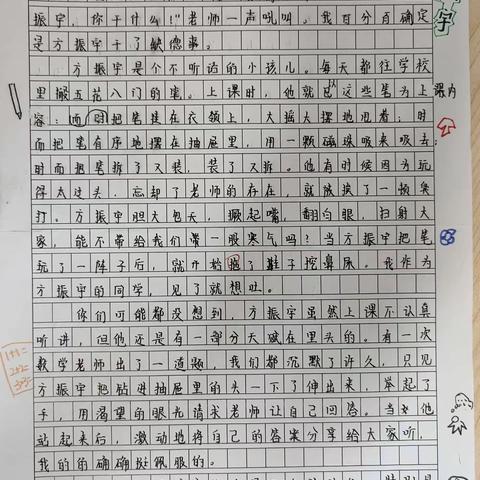 振宇，你干什么！"老师一声吼叫。我百分百确定
是方振宇干了缺德事。
方振宇是个不听话的小孩儿。每天都往学校
里搬五花八门的笔。上课时，他就以这些笔为上课内
容：时而把笔挂在衣领上，大摇大摆地晃着；时
而把笔有序地摆在抽屉里，用一颗磁珠吸来吸去；
时而把笔拆了又装，装了又拆。他有时候因为玩
得太过头，忘却了老师的存在，就被挨了一顿臭
打。方振宇胆大包天，撅起嘴，翻白眼，扫射大
家，能不带给我们带一股寒气吗？当方振宇把笔
玩了一阵子后，就开始拖了鞋子挖鼻屎。我作为
方振宇的同学，见了就想吐。
你们可能都没想到，方振宇虽然上课不认真
听讲，但他还是有一部分天赋在里头的。有一次
数学老师出了一道题，我们都沉默了许久，只见
方振宇把钻进抽屉里的头一下了伸出来，举起了
手，用渴望的眼光请求老师让自己回答。当他
站起来后，激动地将自己的答案分享给大家听，
我的的确确挺佩服的。
宇